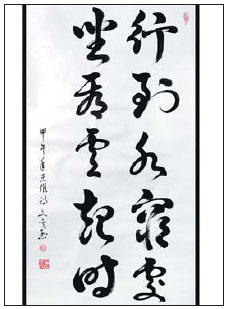 行到水窮處
坐看雲起時
甲午年王維詩